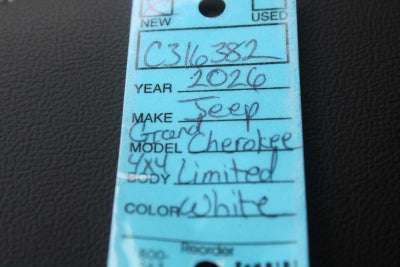 NEW USED
C316382
YEAR 2026
MAKE Jeep
Grand
MODEL Cherokee
4x4
BODY Limited
COLOR White
Reorder
800-